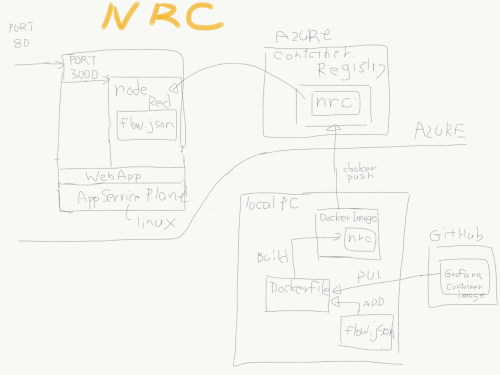 NRC
PORT
80
PORT
3000
node
Red
flow.json
WebApp
AppService Plane
linux
AZURE
Container
Registry
nrc
AZURE
docker
push
local PC
Docker Image
nrc
Build
Dockerfile
PUL
ADD
flow.json
GitHub
Grafana
Container
Image